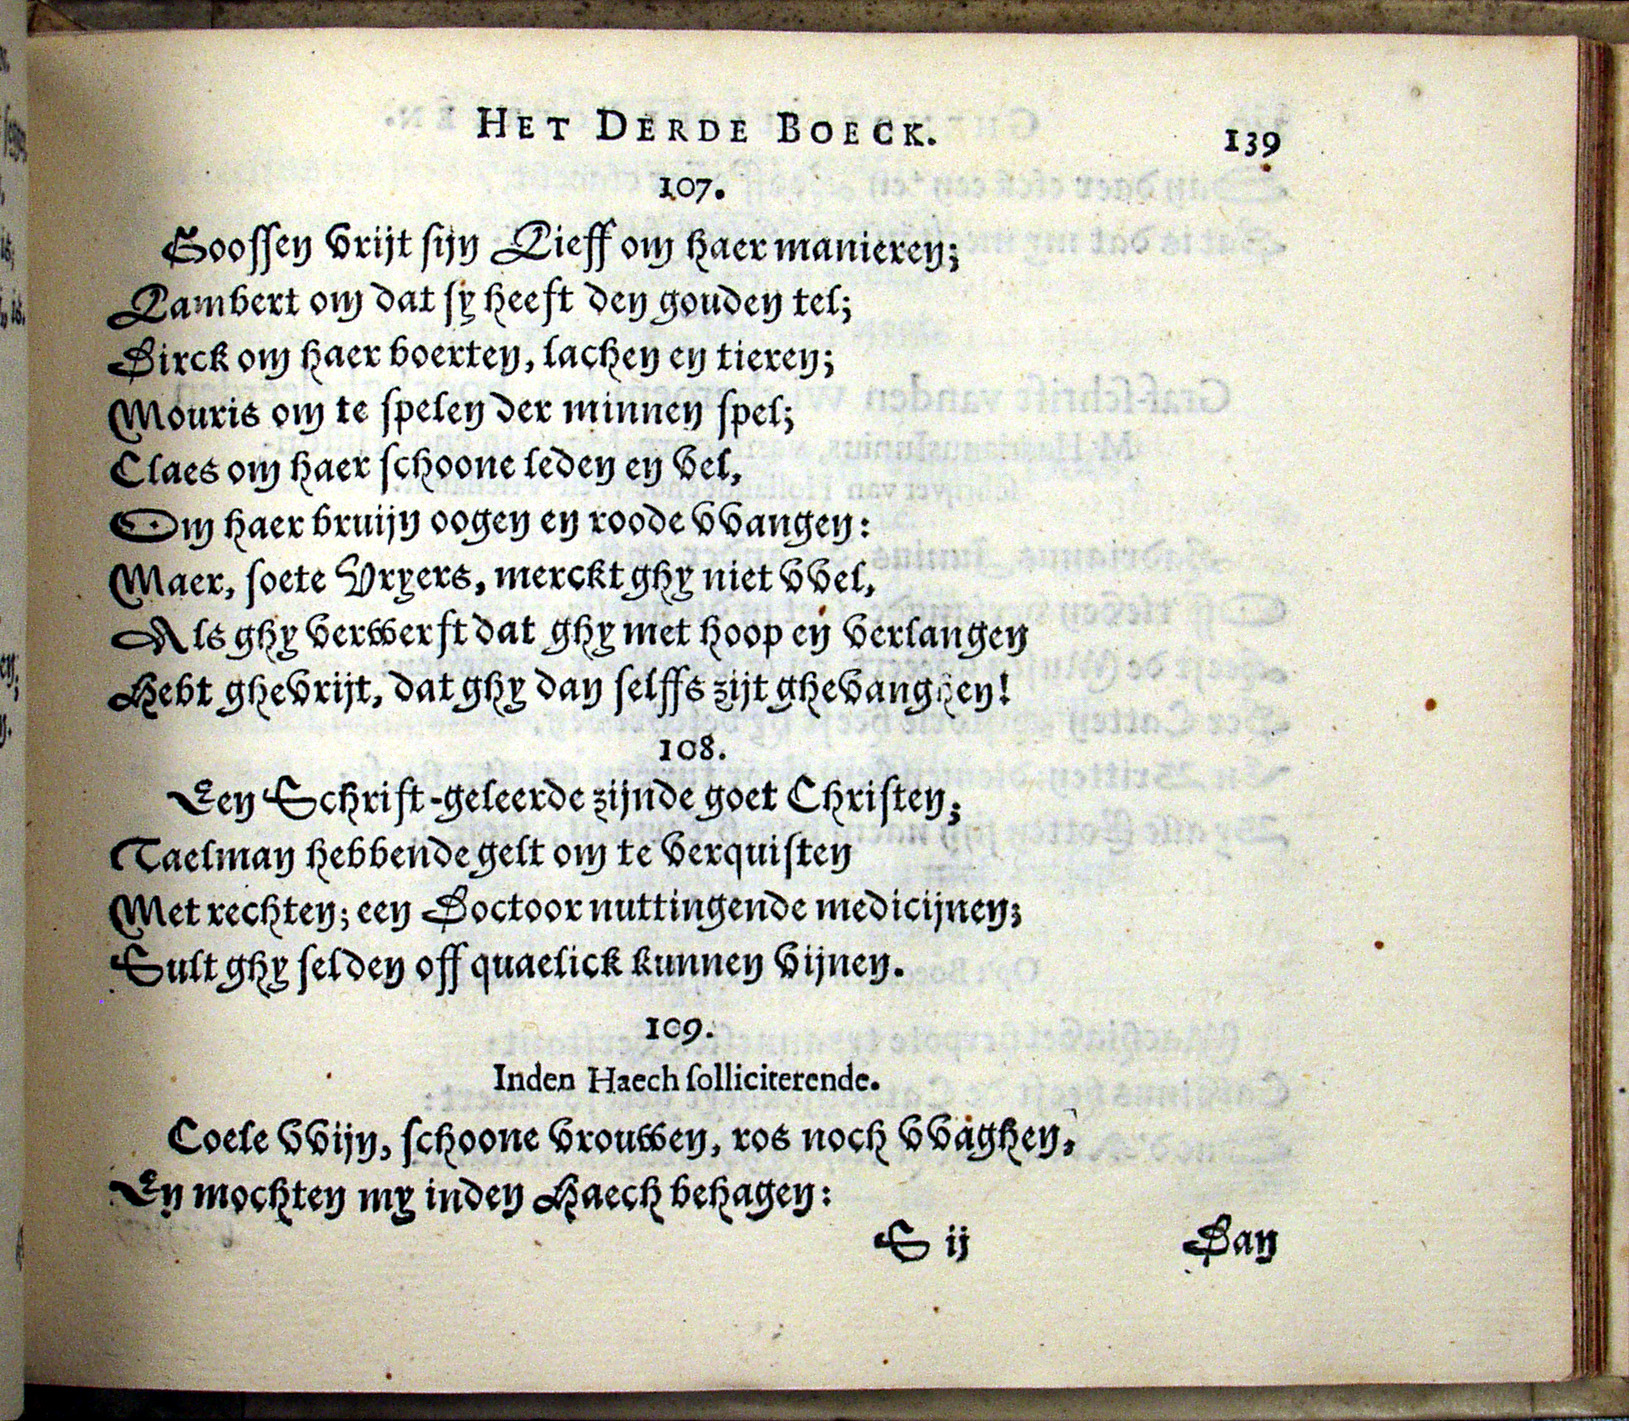 HET DERDE BOECK.
139
107.
Goossen vrijt sijn Lieff om haer manieren;
Lambert om dat sy heeft den gouden tel;
Dirck om haer boerten, lachen en tieren;
Mouris om te spelen der minnen spel;
Claes om haer schoone leden en vel,
Om haer bruijn oogen en roode vvangen:
Maer, soete Vryers, merckt ghy niet vvel,
Als ghy verwerft dat ghy met hoop en verlangen
Hebt ghevrijt, dat ghy dan selffs zijt ghevanghen!
108.
Een Schrift-geleerde zijnde goet Christen;
Taelman hebbende gelt om te verquisten
Met rechten; een Doctoor nuttingende medicijnen;
Sult ghy selden off quaelick kunnen vijnen.
109.
Inden Haech solliciterende.
Coele vvijn, schoone vrouwen, ros noch vvaghen,
En mochten my inden Haech behagen:
S ij
Dan